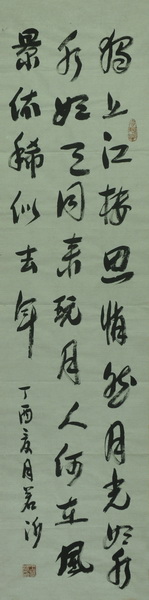 独上江楼思悄然月光如水
水如天同来玩月人何在风
景依稀似去年
丁酉夏月若沙